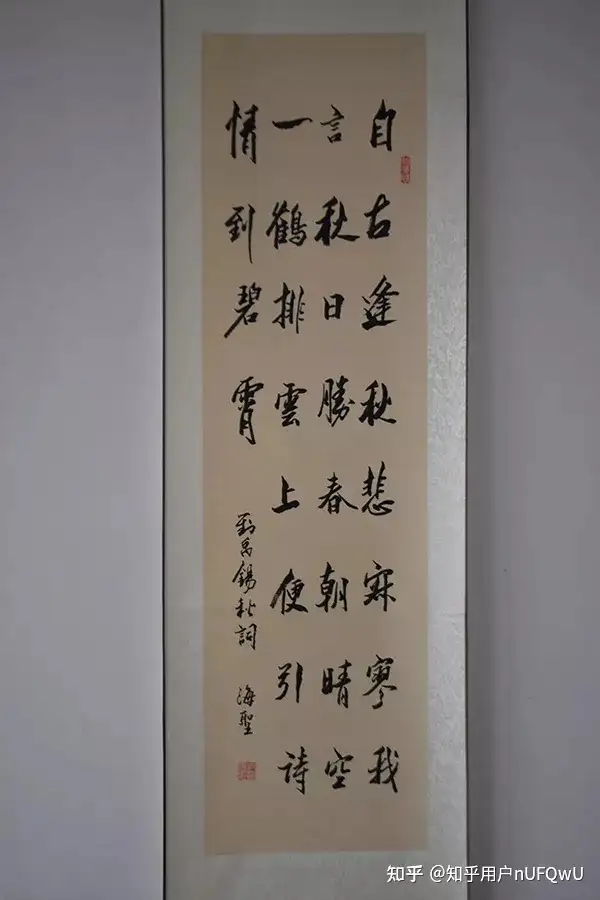 自古逢秋悲寂寥我
言秋日勝春朝晴空
一鶴排雲上便引詩
情到碧霄
劉禹錫秋詞
海聖
知乎 @知乎用户nUFQwU